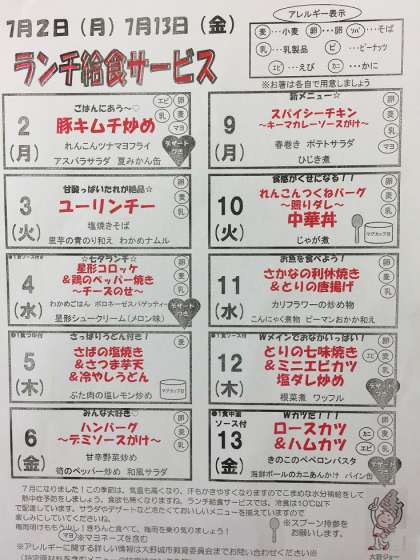 7月2日（月）7月13日（金）
ランチ給食サービス
アレルギー表示
麦…小麦 卵…卵 ソバ…そば
乳…乳製品 ピ…ピーナッツ
エビ…えび カニ…かに
※お箸は各自で用意しましょう
2
(月)
ごはんにあう～♡
豚キムチ炒め
れんこんツナマヨフライ
アスパラサラダ 夏みかん缶
エビ 卵 麦 乳 マヨ
デザートつき
3
(火)
甘酸っぱいたれが絶品☆
ユーリンチー
塩焼きそば
里芋の青のり和え わかめナムル
卵 麦 乳
4
(水)
☆七夕ランチ☆
星形コロッケ
&鶏のペッパー焼き
～チーズのせ～
わかめごはん ボロネーゼスパゲッティー
星形シュークリーム（メロン味）
卵 麦 乳
デザートつき
5
(木)
さっぱりうどん付き！
さばの塩焼き
&さつま芋天
&冷やしうどん
ぶた肉の塩レモン炒め
マグカップ可
6
(金)
みんな大好き♡
ハンバーグ
～デミソースがけ～
甘辛野菜炒め
筍のペッパー炒め 和風サラダ
卵 麦 乳
9
(月)
新メニュー☆
スパイシーチキン
～キーマカレーソースがけ～
春巻き ポテトサラダ
ひじき煮
卵 麦 乳 マヨ
10
(火)
食感がくせになる！！
れんこんつくねバーグ
～照りダレ～
中華丼
じゃが煮
卵 麦 乳
マグカップ可
11
(水)
お魚を食べよう！
さかなの利休焼き
&とりの唐揚げ
カリフラワーの炒め物
こんにゃく煮物 ピーマンおかか和え
卵 麦 乳
12
(木)
Wメインでおなかいっぱい！
とりの七味焼き
&ミニエビカツ
塩ダレ炒め
根菜煮 ワッフル
卵 エビ 麦 乳
13
(金)
●1食中濃
ソース付
Wカツだ！！！
ロースカツ
&ハムカツ
きのこのペペロンパスタ
海鮮ボールのカニあんかけ パイン缶
卵 カニ 麦 エビ 乳
７月になりました！この季節は、気温も高くなり、汗もかきやすくなりますのでこまめな水分補給をして
熱中症予防をしましょう。食欲も無くなりますね。ランチ給食サービスでは、冷食は10℃以下
で配達しています。サラダやデザートなど冷たくておいしいメニューを揃えていますので
楽しみにしていてくださいね。
梅雨明けももう少し！きちんと食べて、梅雨を乗り切りましょう！
※マヨネーズを含む
※スプーン持参を
お願いします。
※アレルギーに関する詳しい情報は大野城市教育委員会までお問い合わせください
大野ジョー